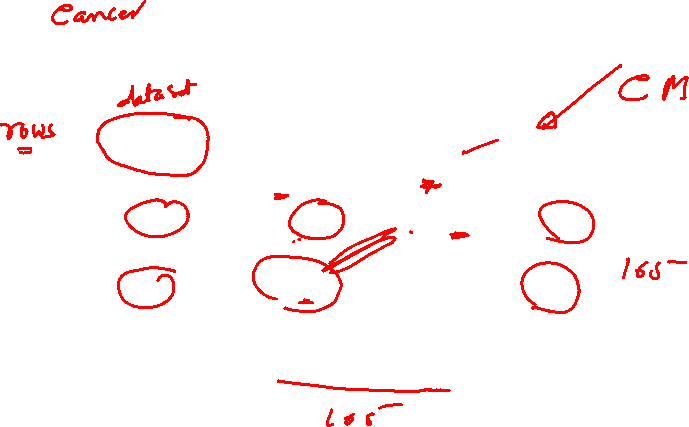 Cancer
dataset
rows
CM
165
165